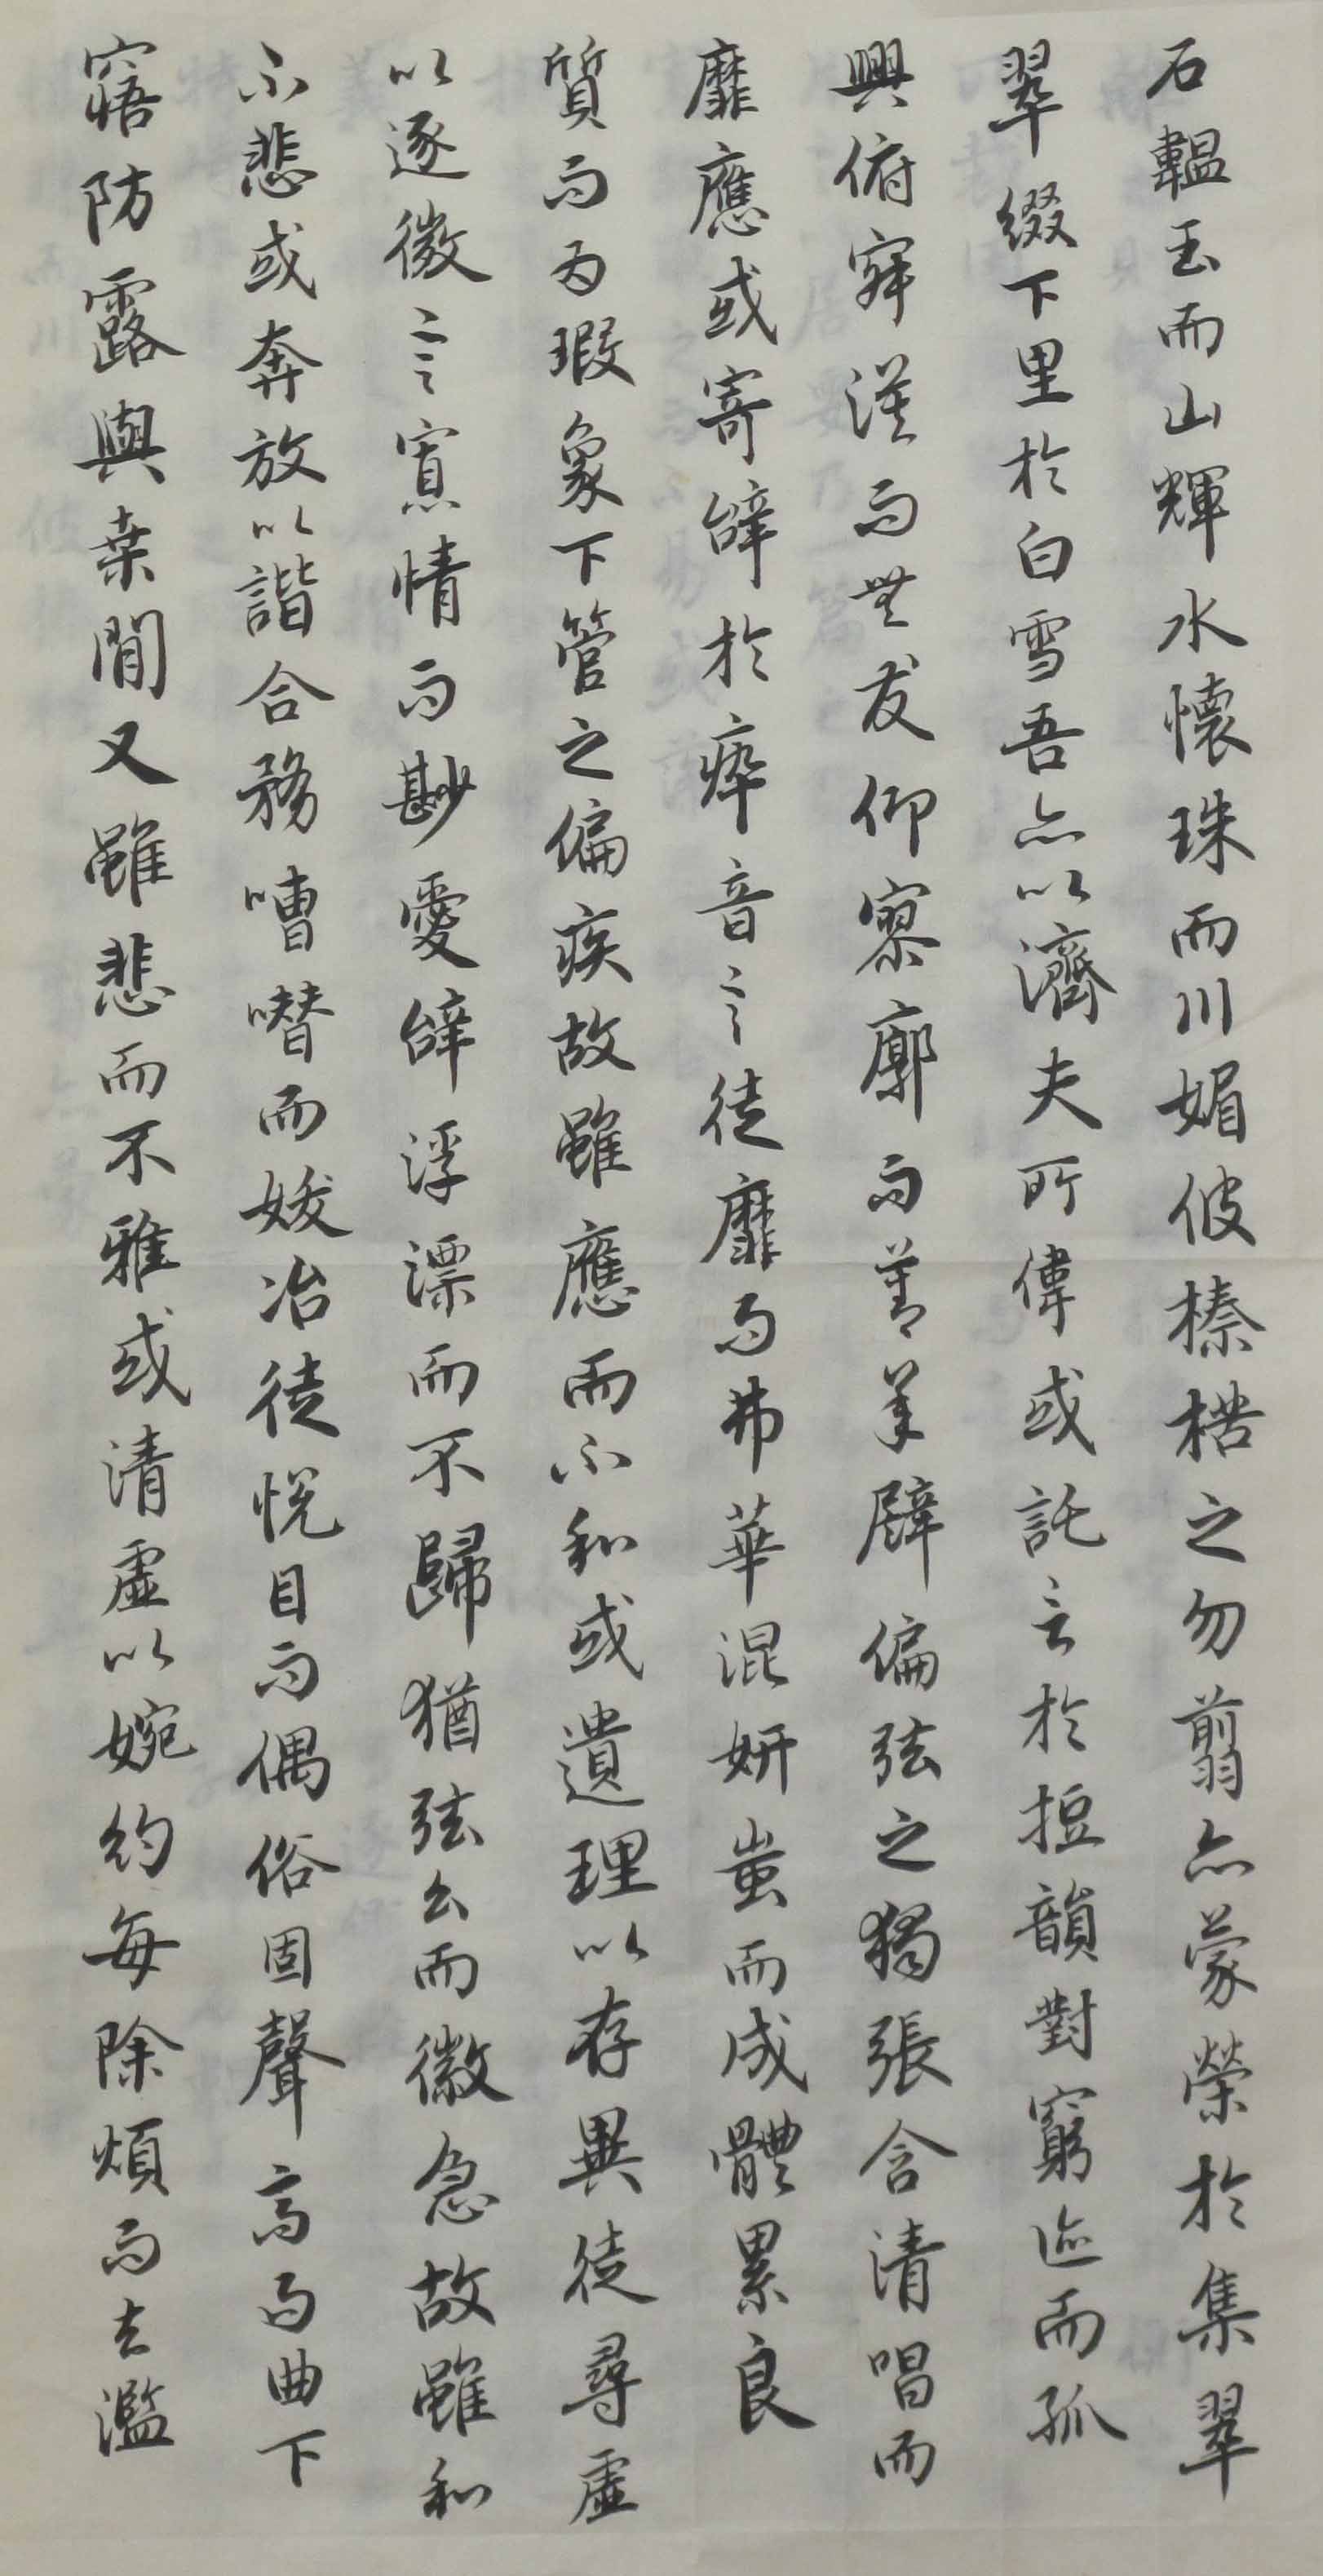 石韞玉而山輝水懷珠而川媚彼榛楛之勿翦亦蒙榮於集翠
翠綴下里於白雪吾亦以濟夫所偉或託言於短韻對窮迹而孤
興俯寂漠而無友仰寥廓而莫承譬偏弦之獨張含清唱而
靡應或寄辭於瘁音言徒靡而弗華混妍蚩而成體累良
質而為瑕象下管之偏疾故雖應而不和或遺理以存異徒尋虛
以逐微言寡情而尠愛辭浮漂而不歸猶弦么而徽急故雖和
不悲或奔放以諧合務嘈囋而妖冶徒悅目而偶俗固聲高而曲下
寤防露與桑間又雖悲而不雅或清虛以婉約每除煩而去濫